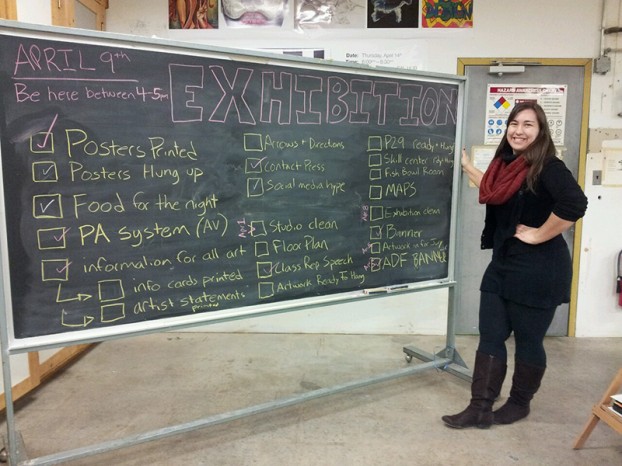 APRIL 9th
Be here between 4-5pm
EXHIBITION
Posters Printed
Posters Hung up
Food for the night
PA System (AV)
information for all art
info cards printed
artist statements
Arrows + Directions
Contact Press
Social media hype
Studio clean
Floor Plan
Class Rep Speech
Artwork Ready To Hang
P29 ready + Hung
Skill center
Fish Bowl Room
MAPS
Exhibition clean
Banner
Artwork is for
ADF BANNER